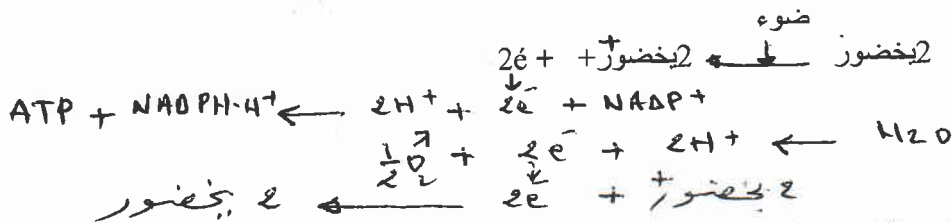 ضوء
2يخضور ← 2يخضور+ + 2é
ATP + NADPH.H+ ← 2H+ + 2e- + NADP+
½O2 ↗ + 2e- + 2H+ ← H2O
2 يخضور ← 2e- + 2 يخضور+